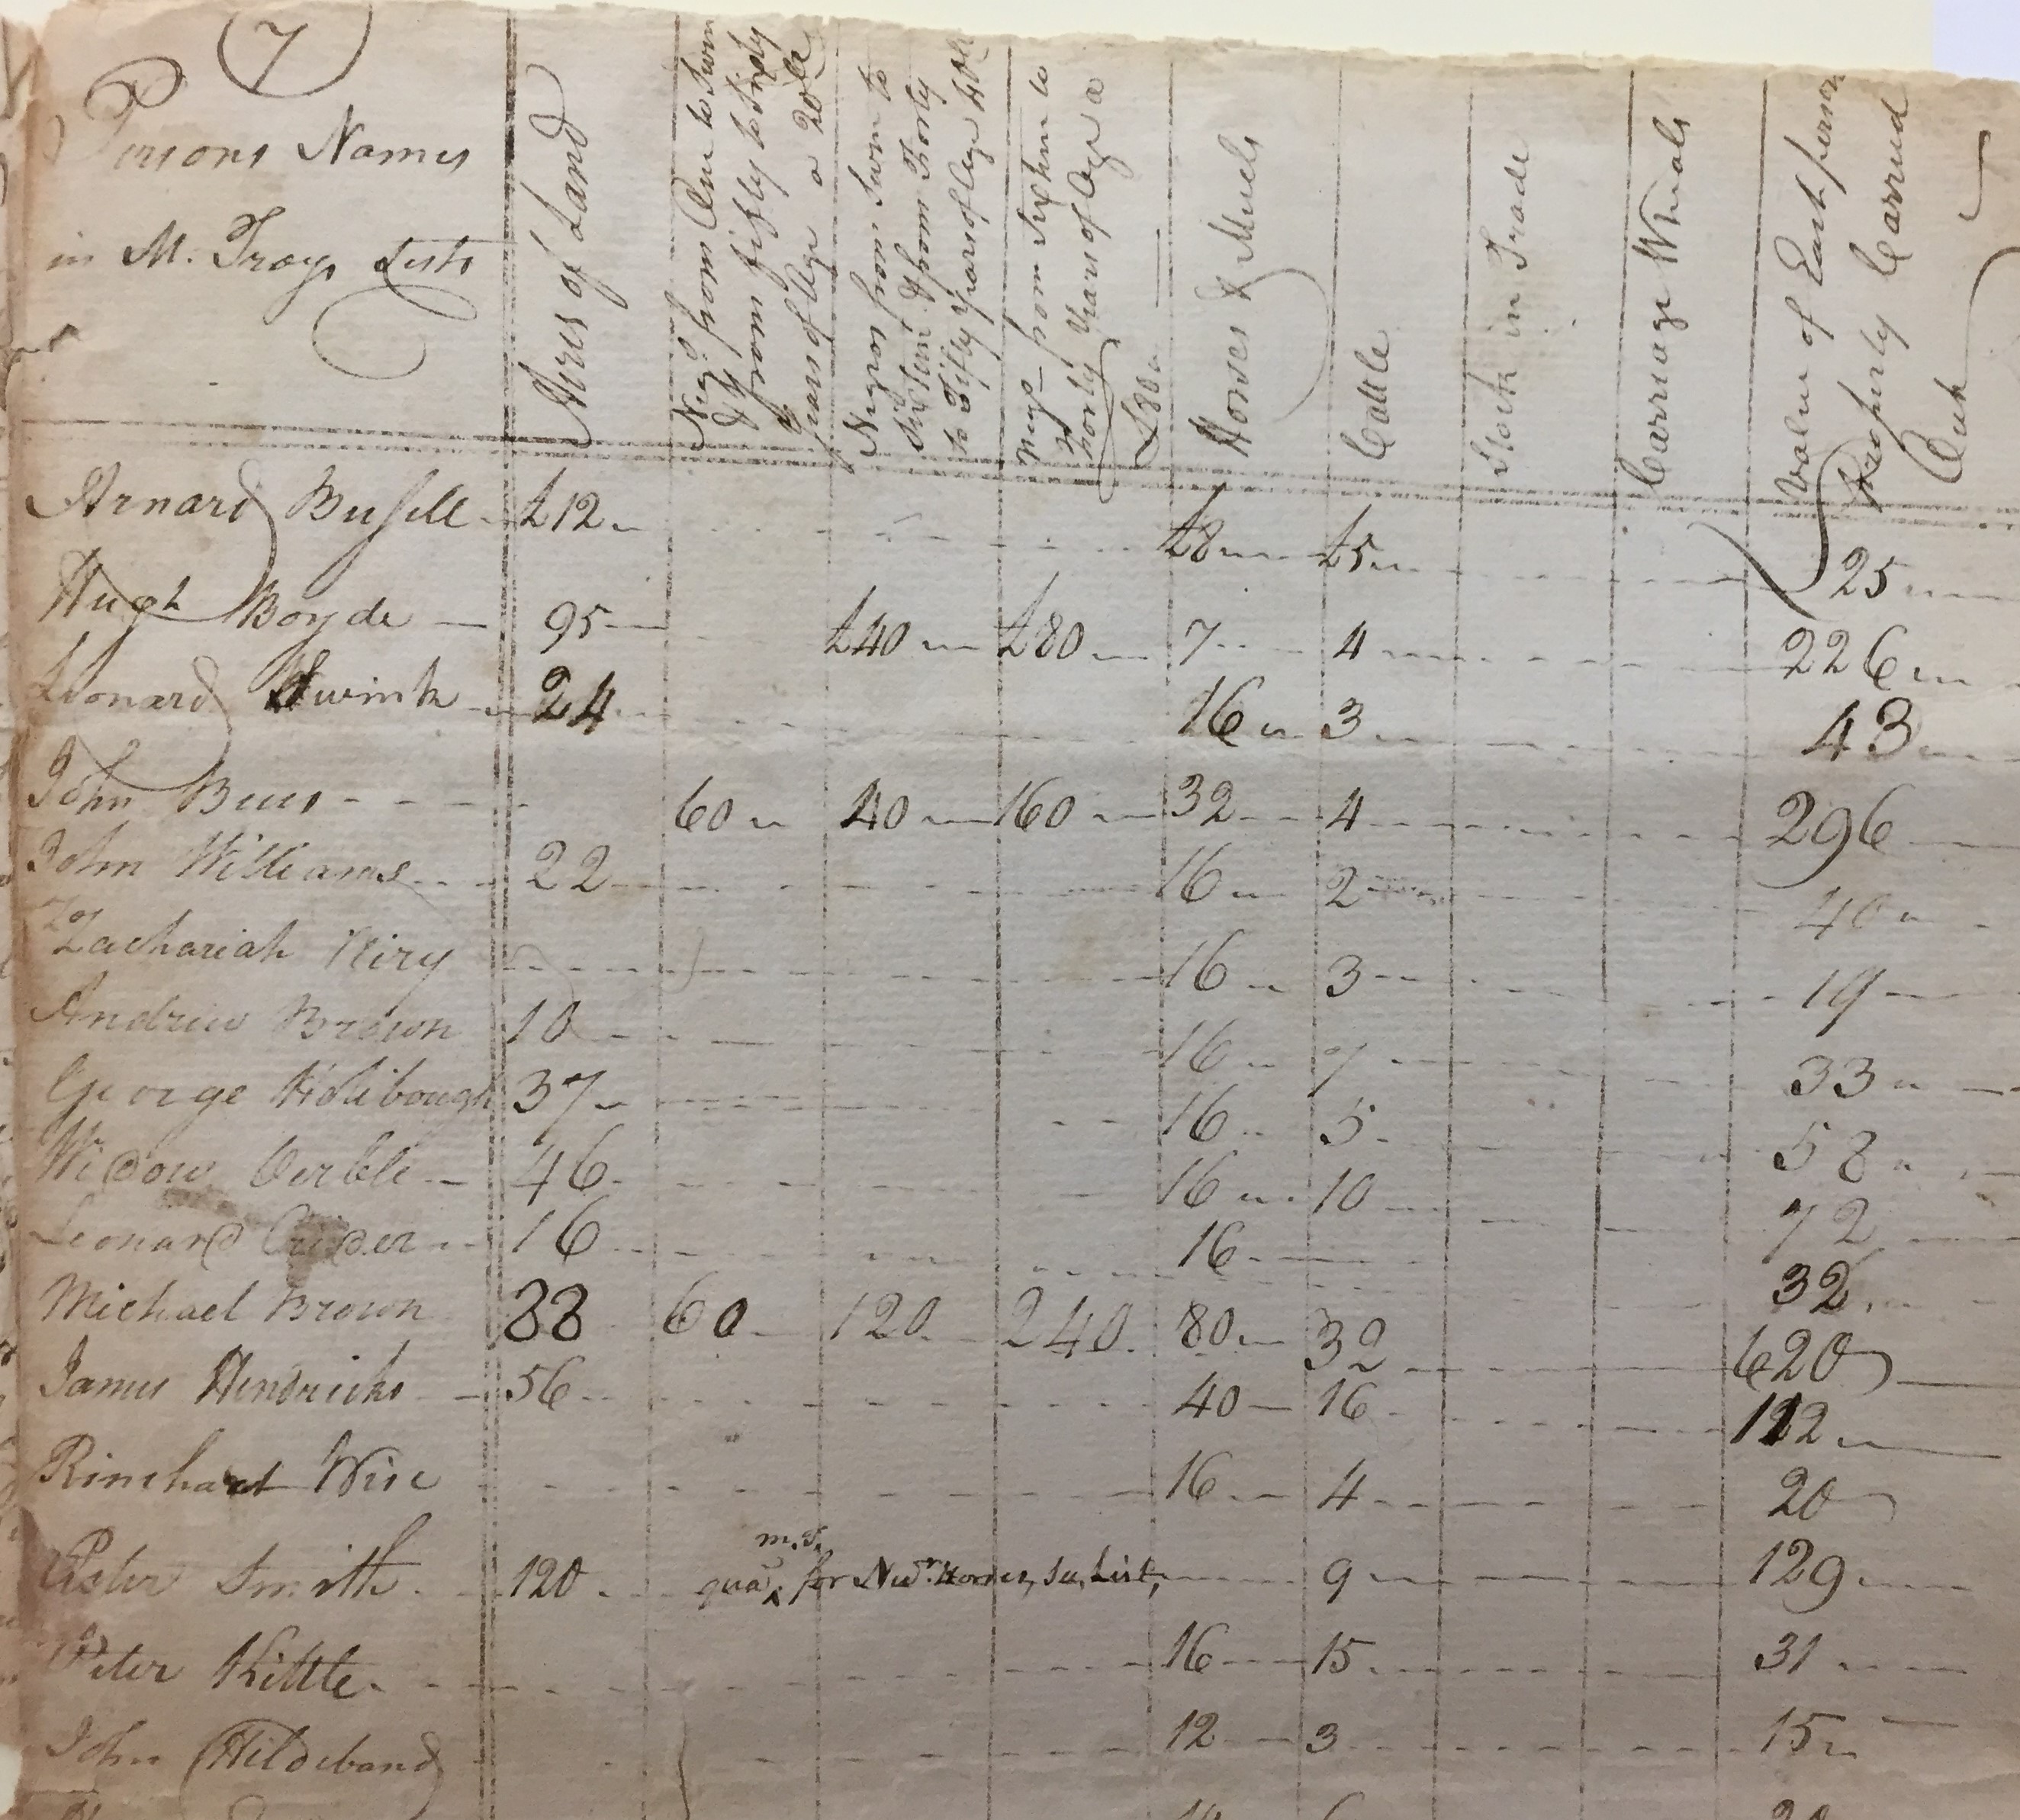 7
Persons Names
in M. Troys Lists
Acres of Land
Negs. from One to Seven
& from fifty to Sixty
years of Age a 20 £e
Negros from Seven to
Sixteen & from Forty
to Fifty Years of Age 40£
Negs from Sixteen to
Forty Years of Age a
£80
Horses & Muels
Cattle
Stock in Trade
Carriage Wheals
Value of Each persons
Property Carried
Out
Arnard Bussell £12 £8 £5 25
Hugh Boyde 95 £40 £80 7 4 226
Leonard Swink 24 16 3 43
John Buis 60 40 160 32 4 296
John Williams 22 16 2 40
Zachariah Kiry 16 3 19
Andrew Brown 10 16 7 33
George Holibough 37 16 5 58
Widow Verble 46 16 10 72
Leonard Crider 16 16 32
Michael Brown 88 60 120 240 80 32 620
James Hendricks 56 40 16 112
Rinehart Wise 16 4 20
Peter Smith 120 qua m.T. for New Horses, Su, List, 9 129
Peter Kittle 16 15 31
John Hildeband 12 3 15